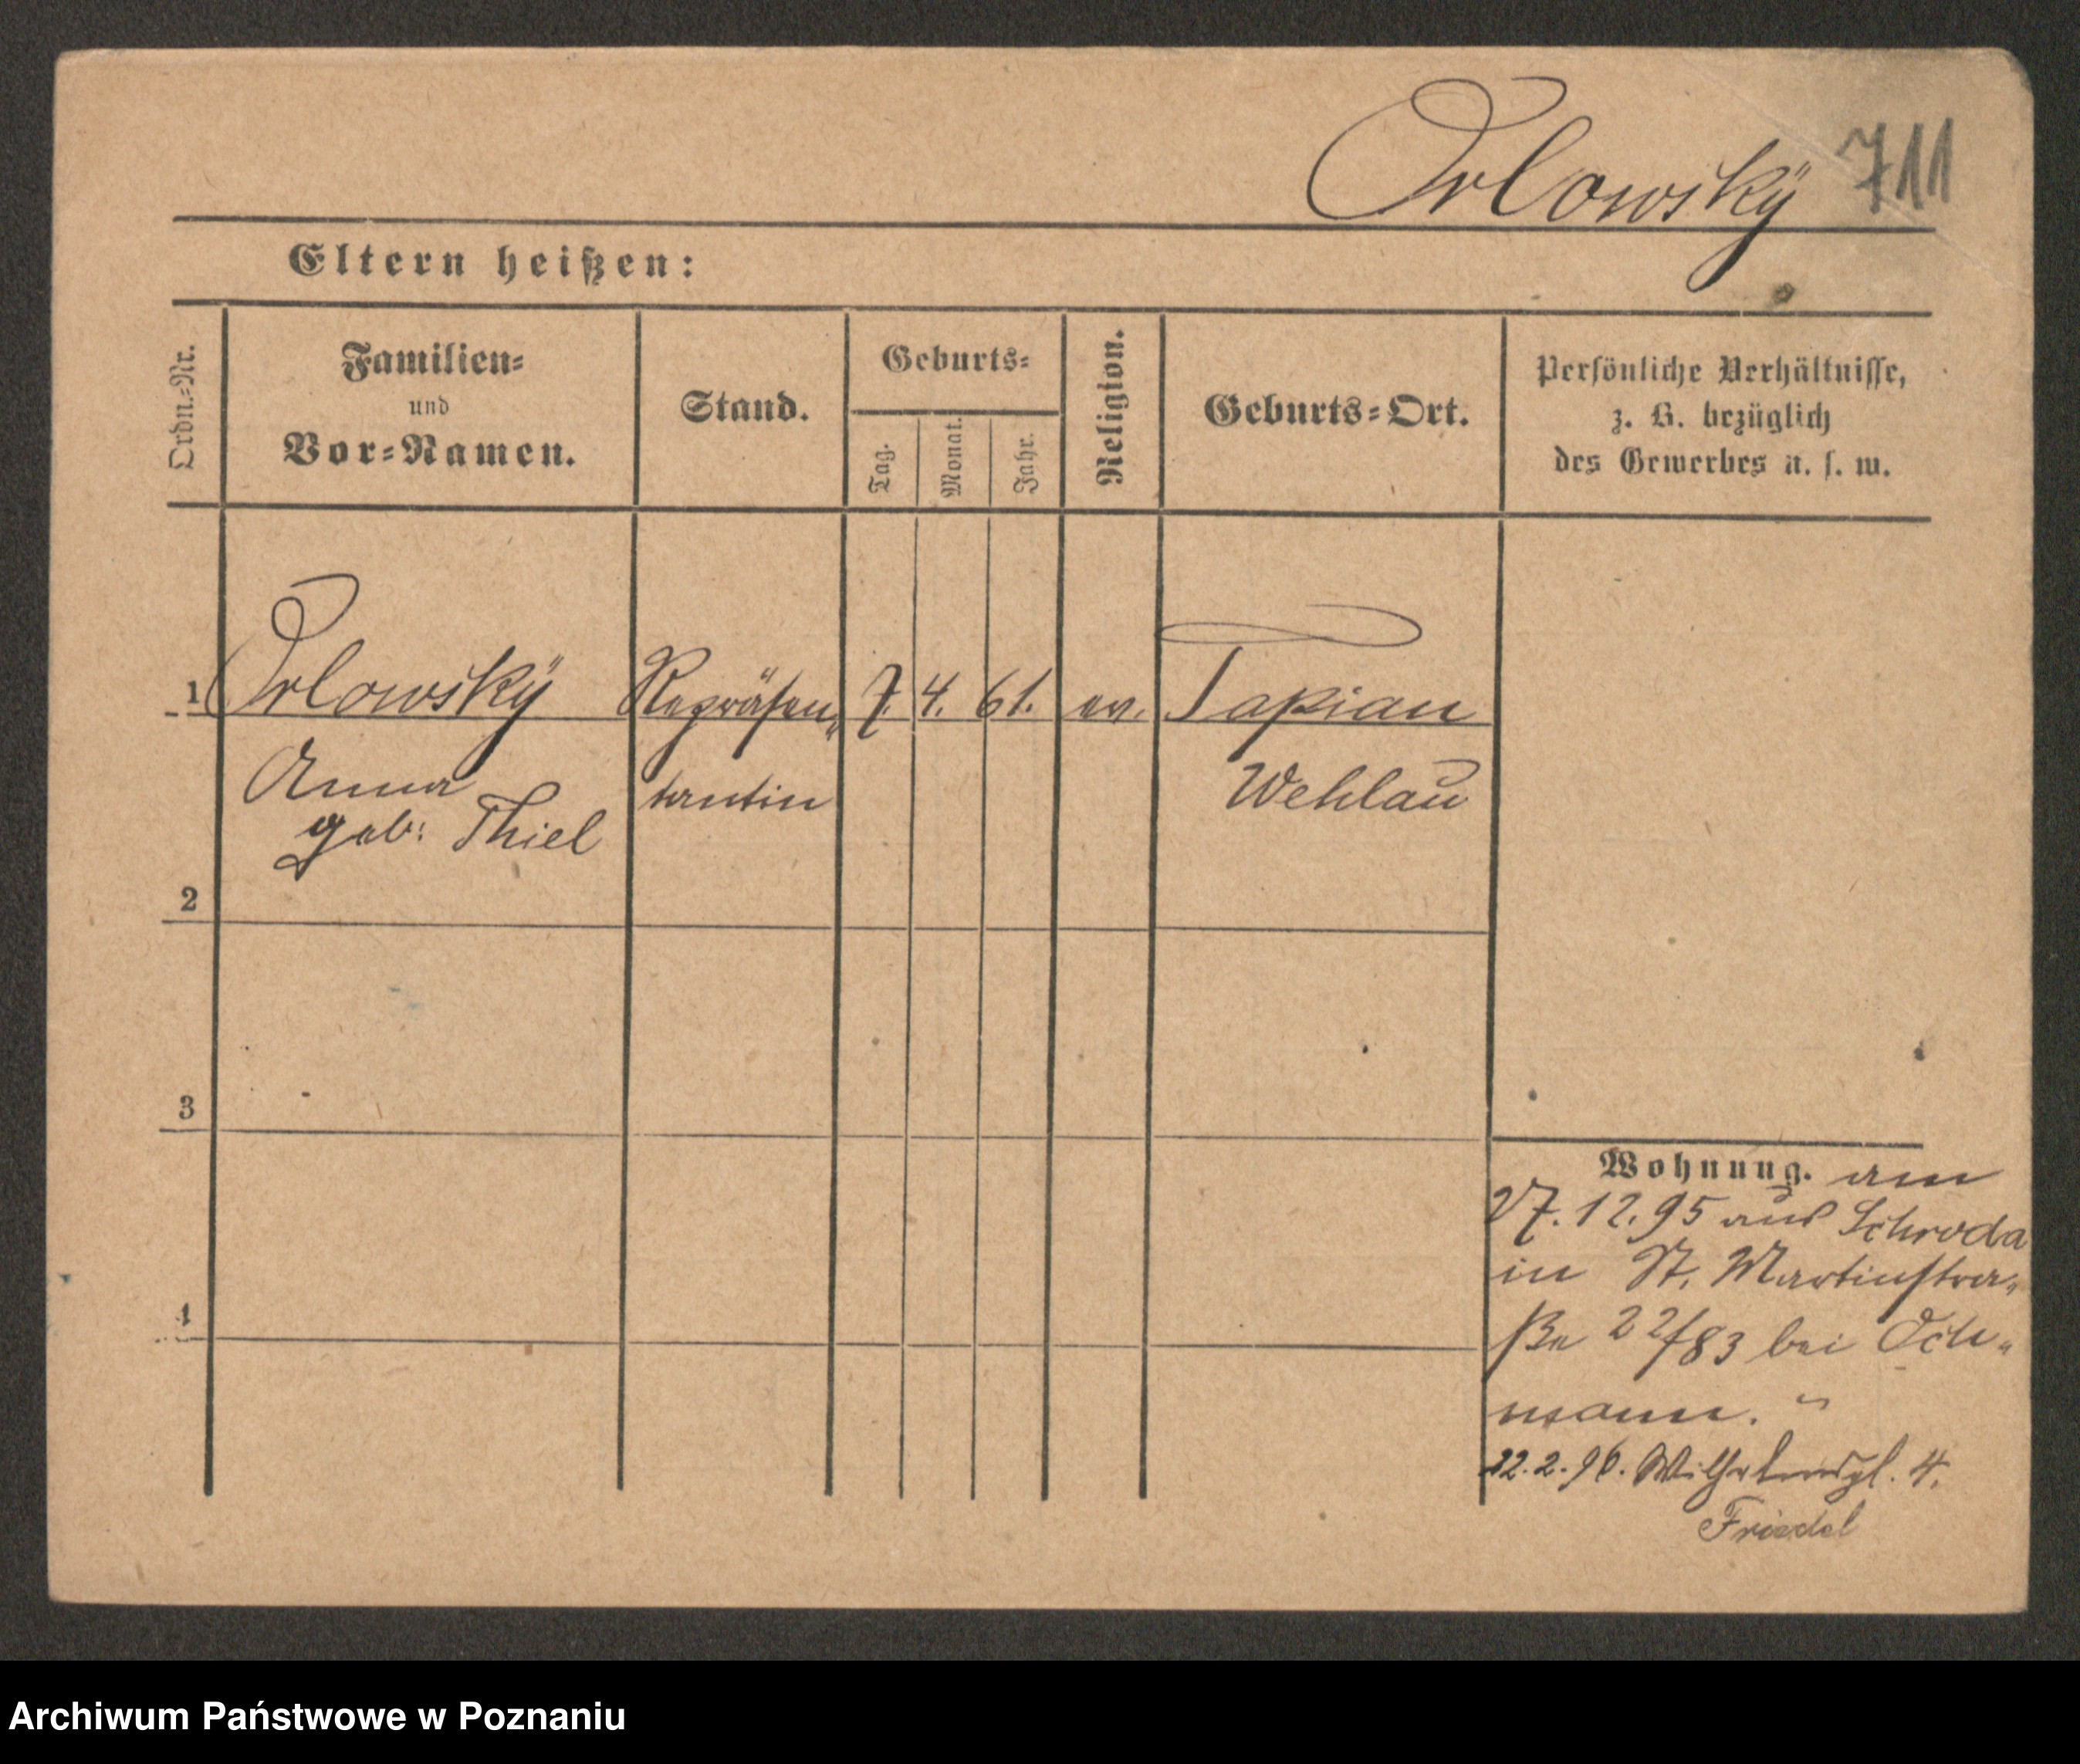 Orlowsky 711
Eltern heißen:
Ordn.-Nr.
Familien-
und
Vor-Namen.
Stand.
Geburts-
Tag.
Monat.
Jahr.
Religion.
Geburts-Ort.
Persönliche Verhältnisse,
z. B. bezüglich
des Gewerbes u. s. w.
1 Orlowsky Repräsen„ 7. 4. 61. ev. Tapiau
Anna tantin Wehlau
geb: Thiel
2
3
4
Wohnung. am
27.12.95 aus Schroda
in St. Martinstra„
ße 22/83 bei Och„
mann.
22.2.96. Wilhelmspl. 4.
Friedel
Archiwum Państwowe w Poznaniu